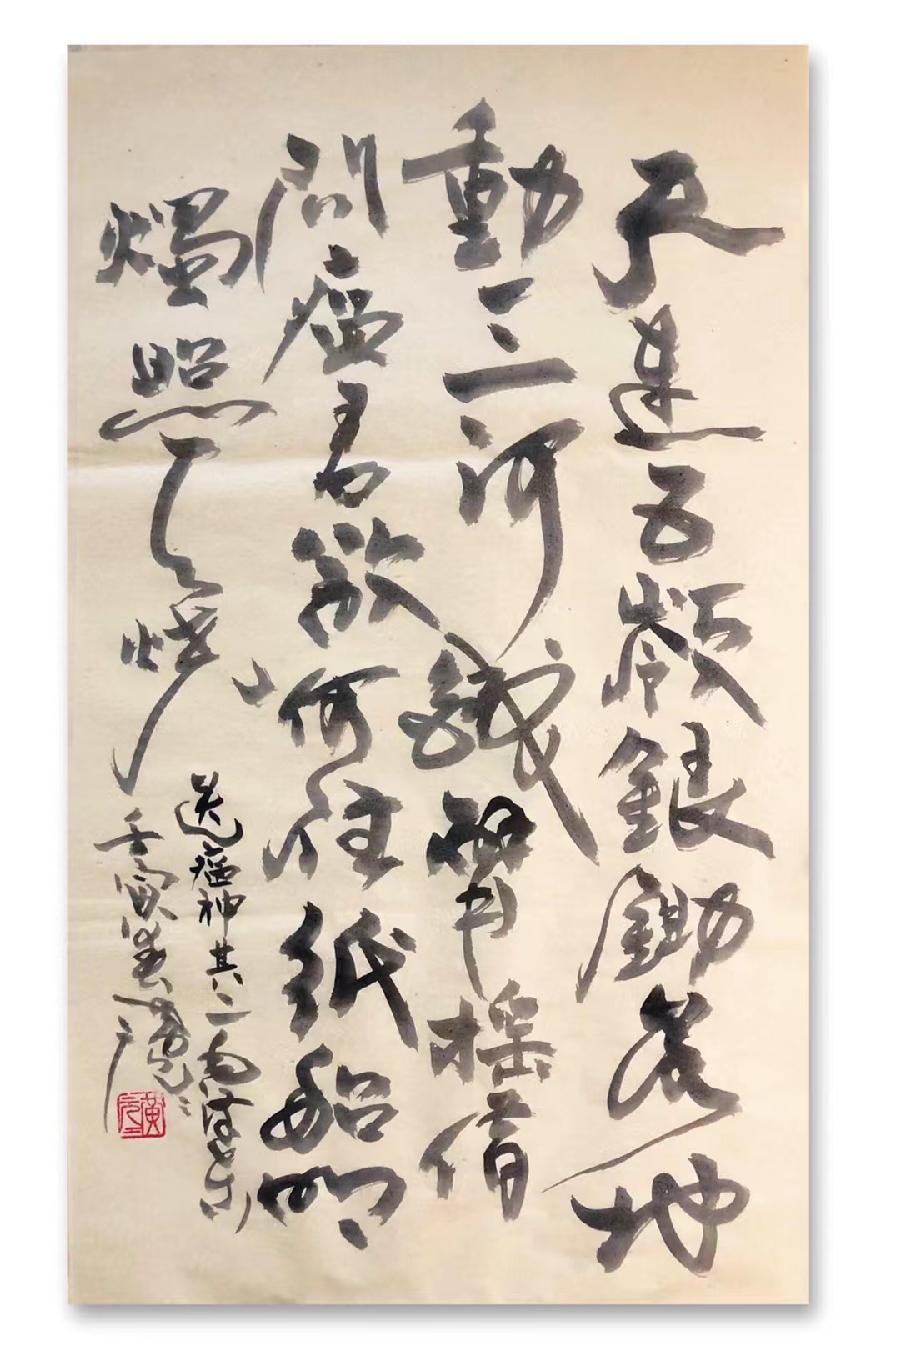 天連五嶺銀鋤落地
動三河鐵臂摇借
問瘟君欲何往紙船明
燭照天燒
送瘟神其二毛澤东
壬寅春